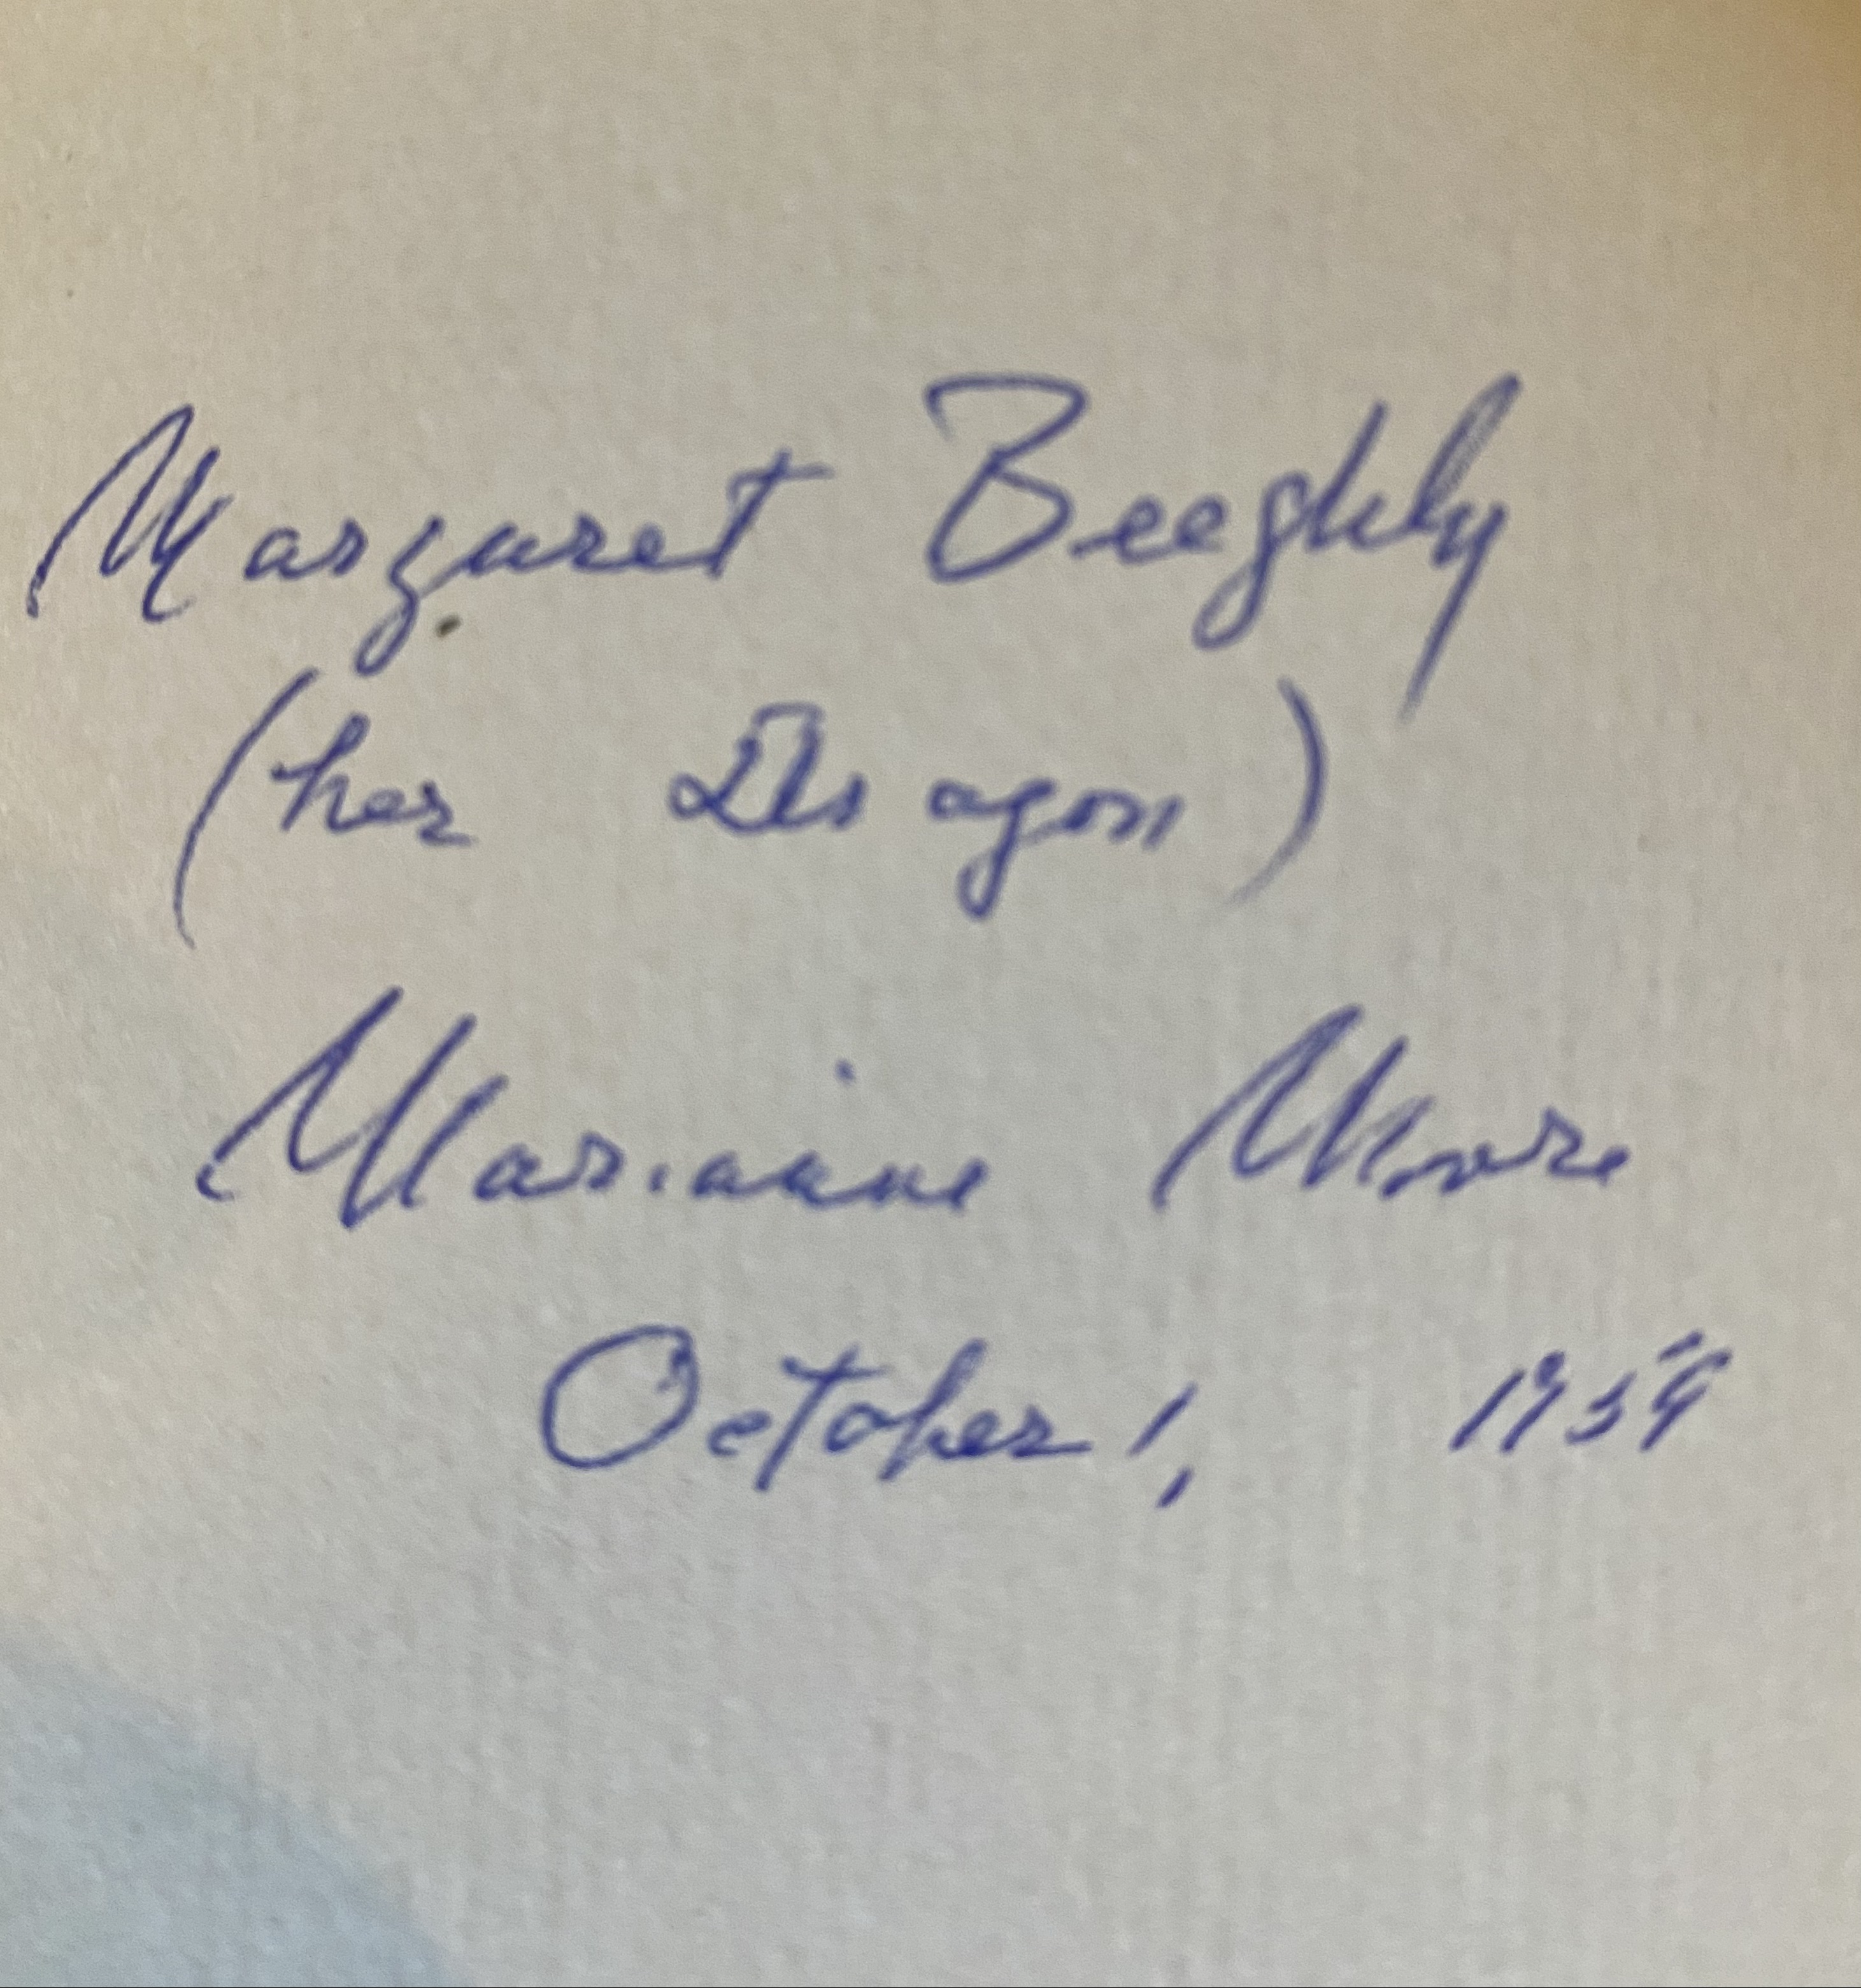 Margaret Beeghly
(her Dragon)
Marianne Moore
October 1, 1959